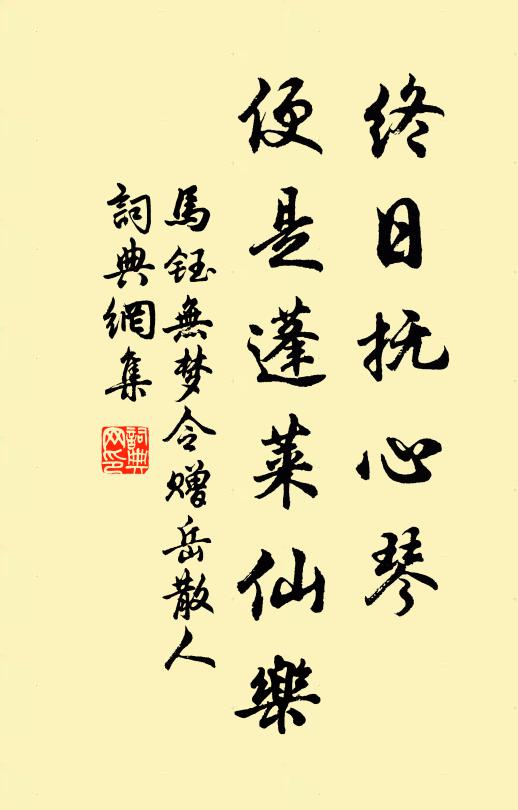 終日抚心琴
便是蓬莱仙樂
馬鈺無梦令赠岳散人
詞典網集
詞典網印